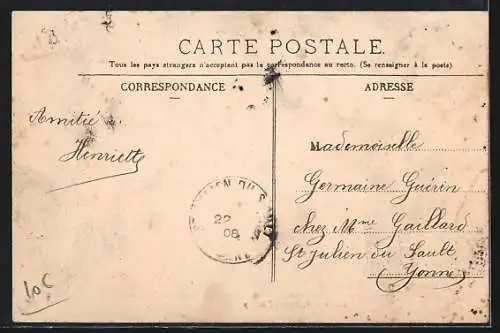 CARTE POSTALE.
Tous les pays étrangers n'acceptent pas la correspondance au recto. (Se renseigner à la poste)
CORRESPONDANCE
ADRESSE
Amitié
Henriette
Mademoiselle
Germaine Guérin
chez Mme Gaillard
St Julien du Sault
(Yonne)
JULIEN DU SAULT
22
08
10c